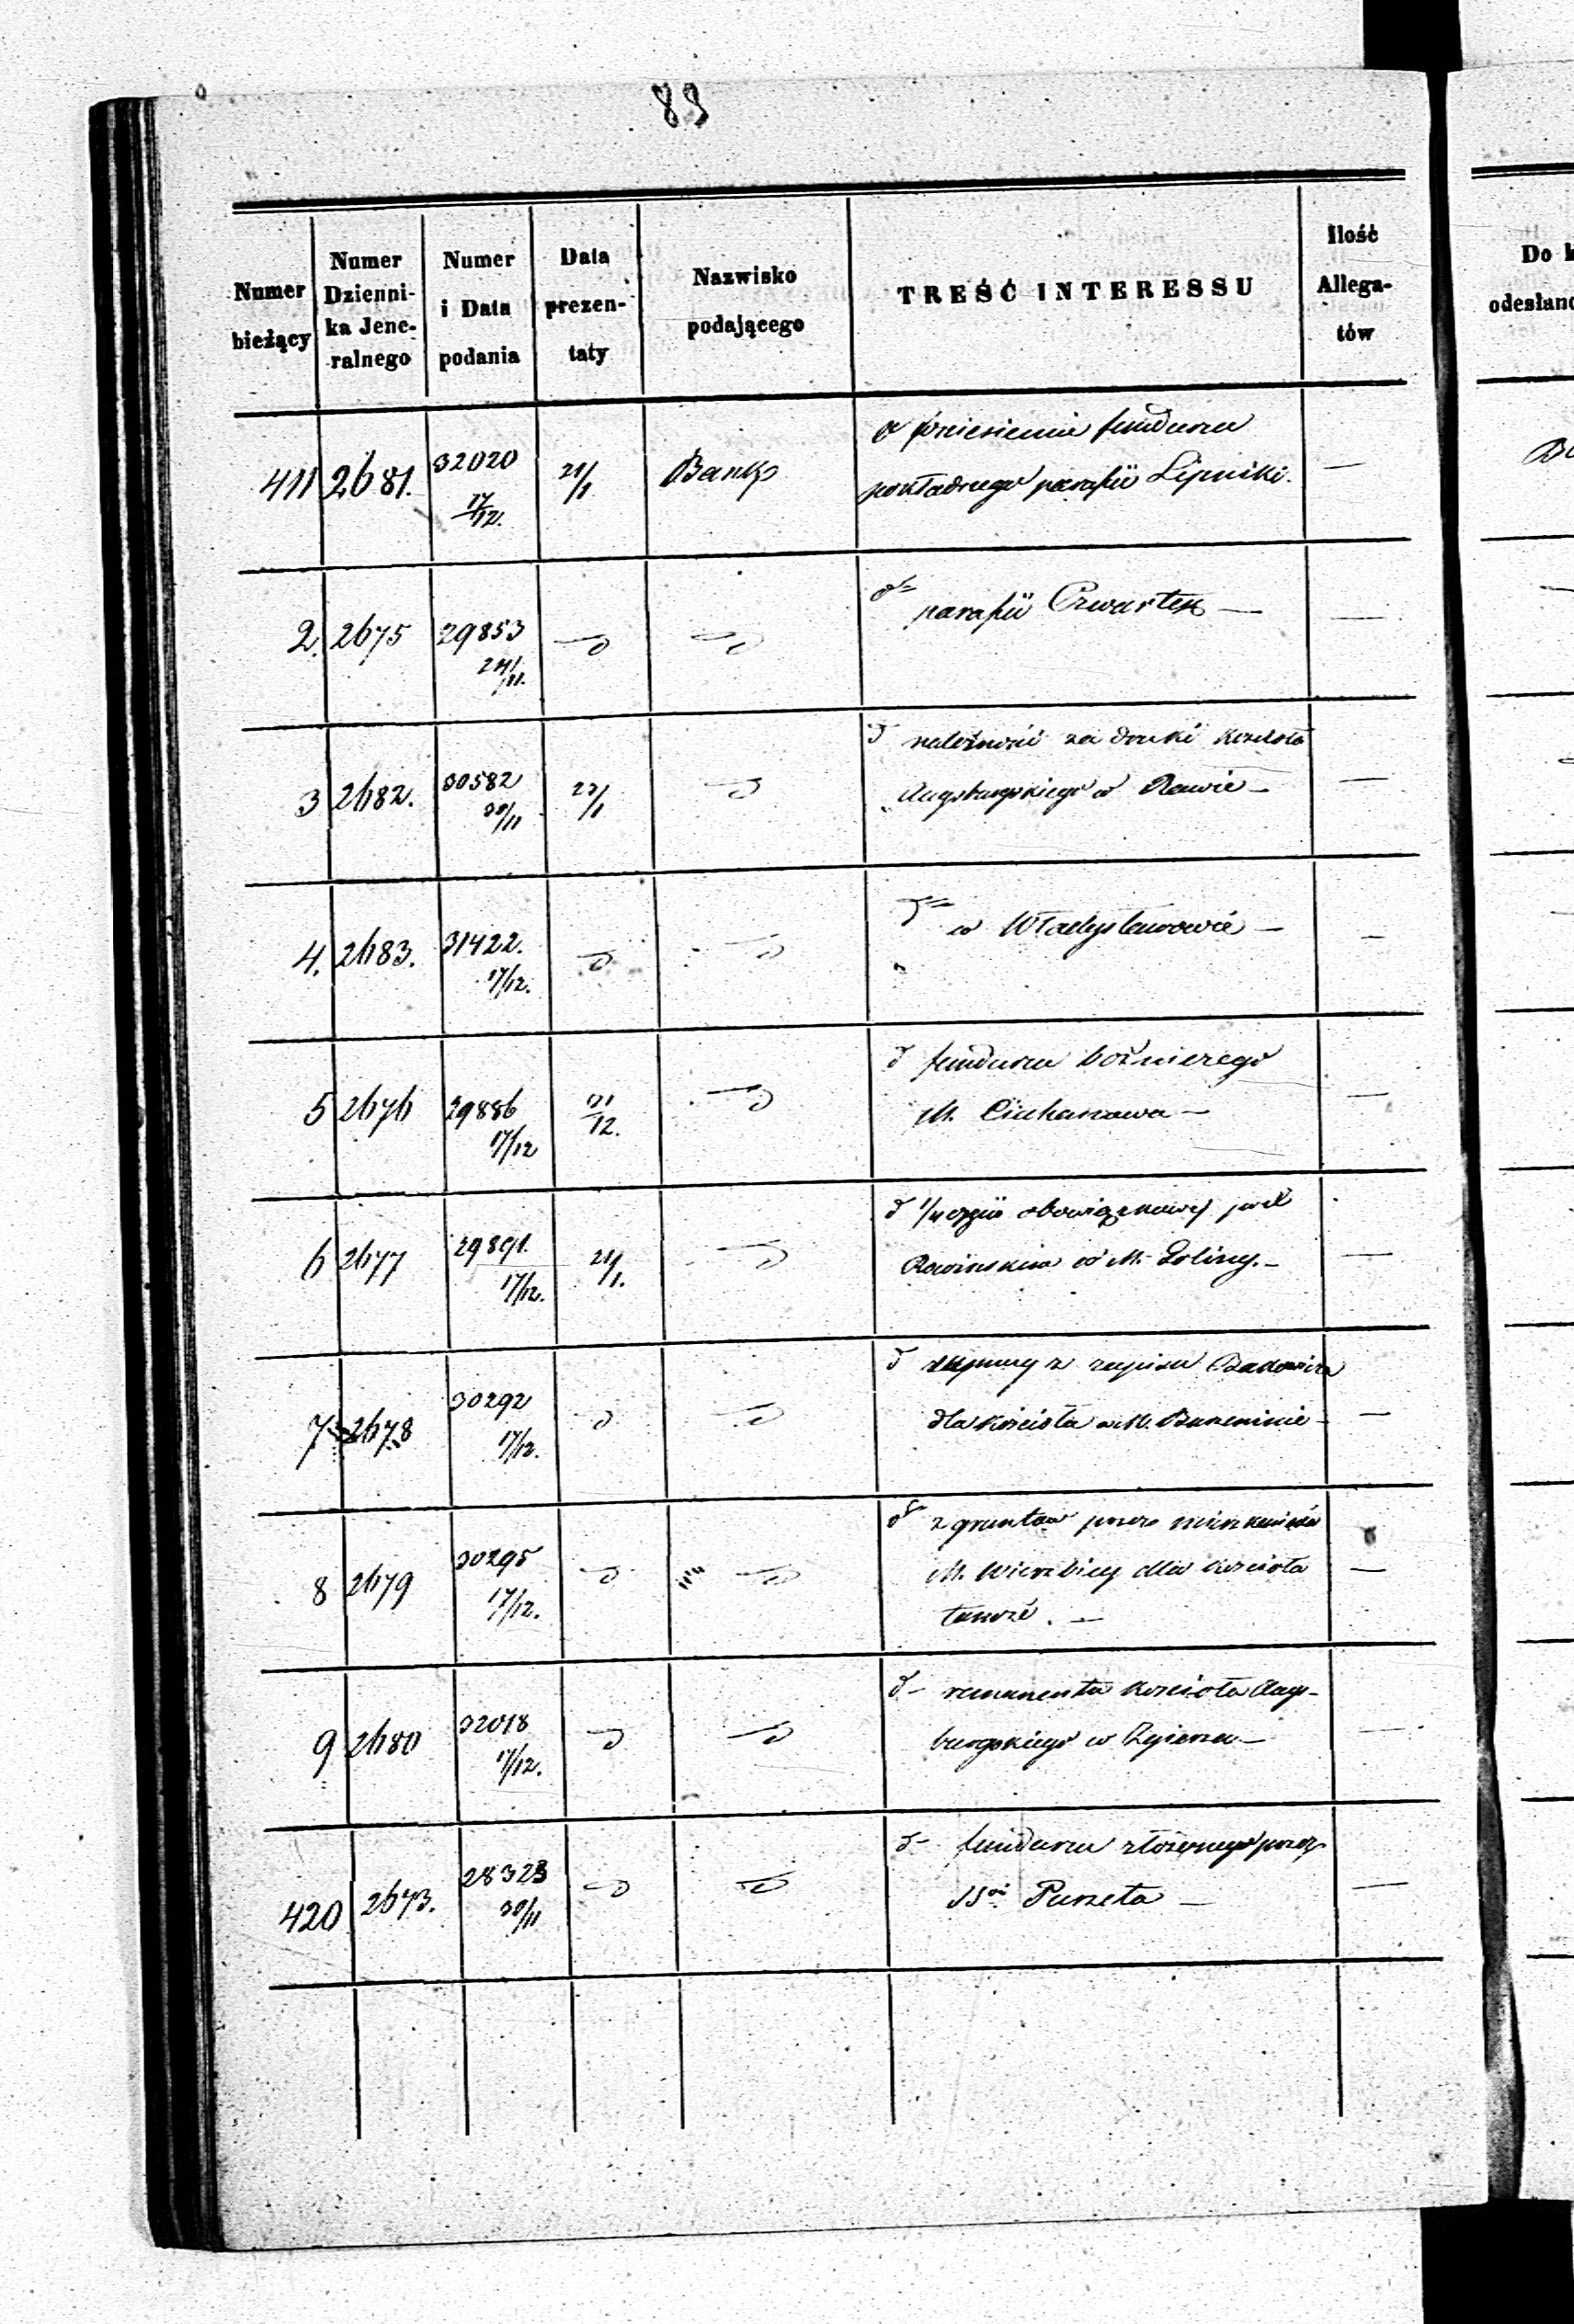 83
Numer bieżący
Numer Dzienni-ka Jene-ralnego
Numer i Data podania
Data prezen-taty
Nazwisko podającego
TREŚĆ INTERESSU
Ilość Allega-tów
Do
odesłano
411 2681. 32020 17/12. 21/1 Bank o przeniesieniu funduszu —
pokładnego parafii Lipniki.
2. 2675 29853 24/11. parafii Czwartek —
3 2682. 30582 30/11 23/1 należność za druki kościoła —
Augsburgskiego w Rawie —
4. 2683. 31422. 17/12. w Władysławowie —
5 2676 29886 17/12 21/12. funduszu bożniczego —
M. Ciechanowa —
6 2677 29891. 17/12. 21/1. obowiązkowej —
w M.
7 2678 30292 17/12. z zapisu —
dla kościoła w M.
8 2679 30295 17/12. z gruntów przez mieszkańców —
M. Wierzbicy dla kościoła
tamże. —
9 2680 32018 17/12. d- remanentu kościoła Augs- —
burgskiego w Zgierzu —
420 2673. 28323 30/11 d- funduszu złożonego przez —
Puszeta —